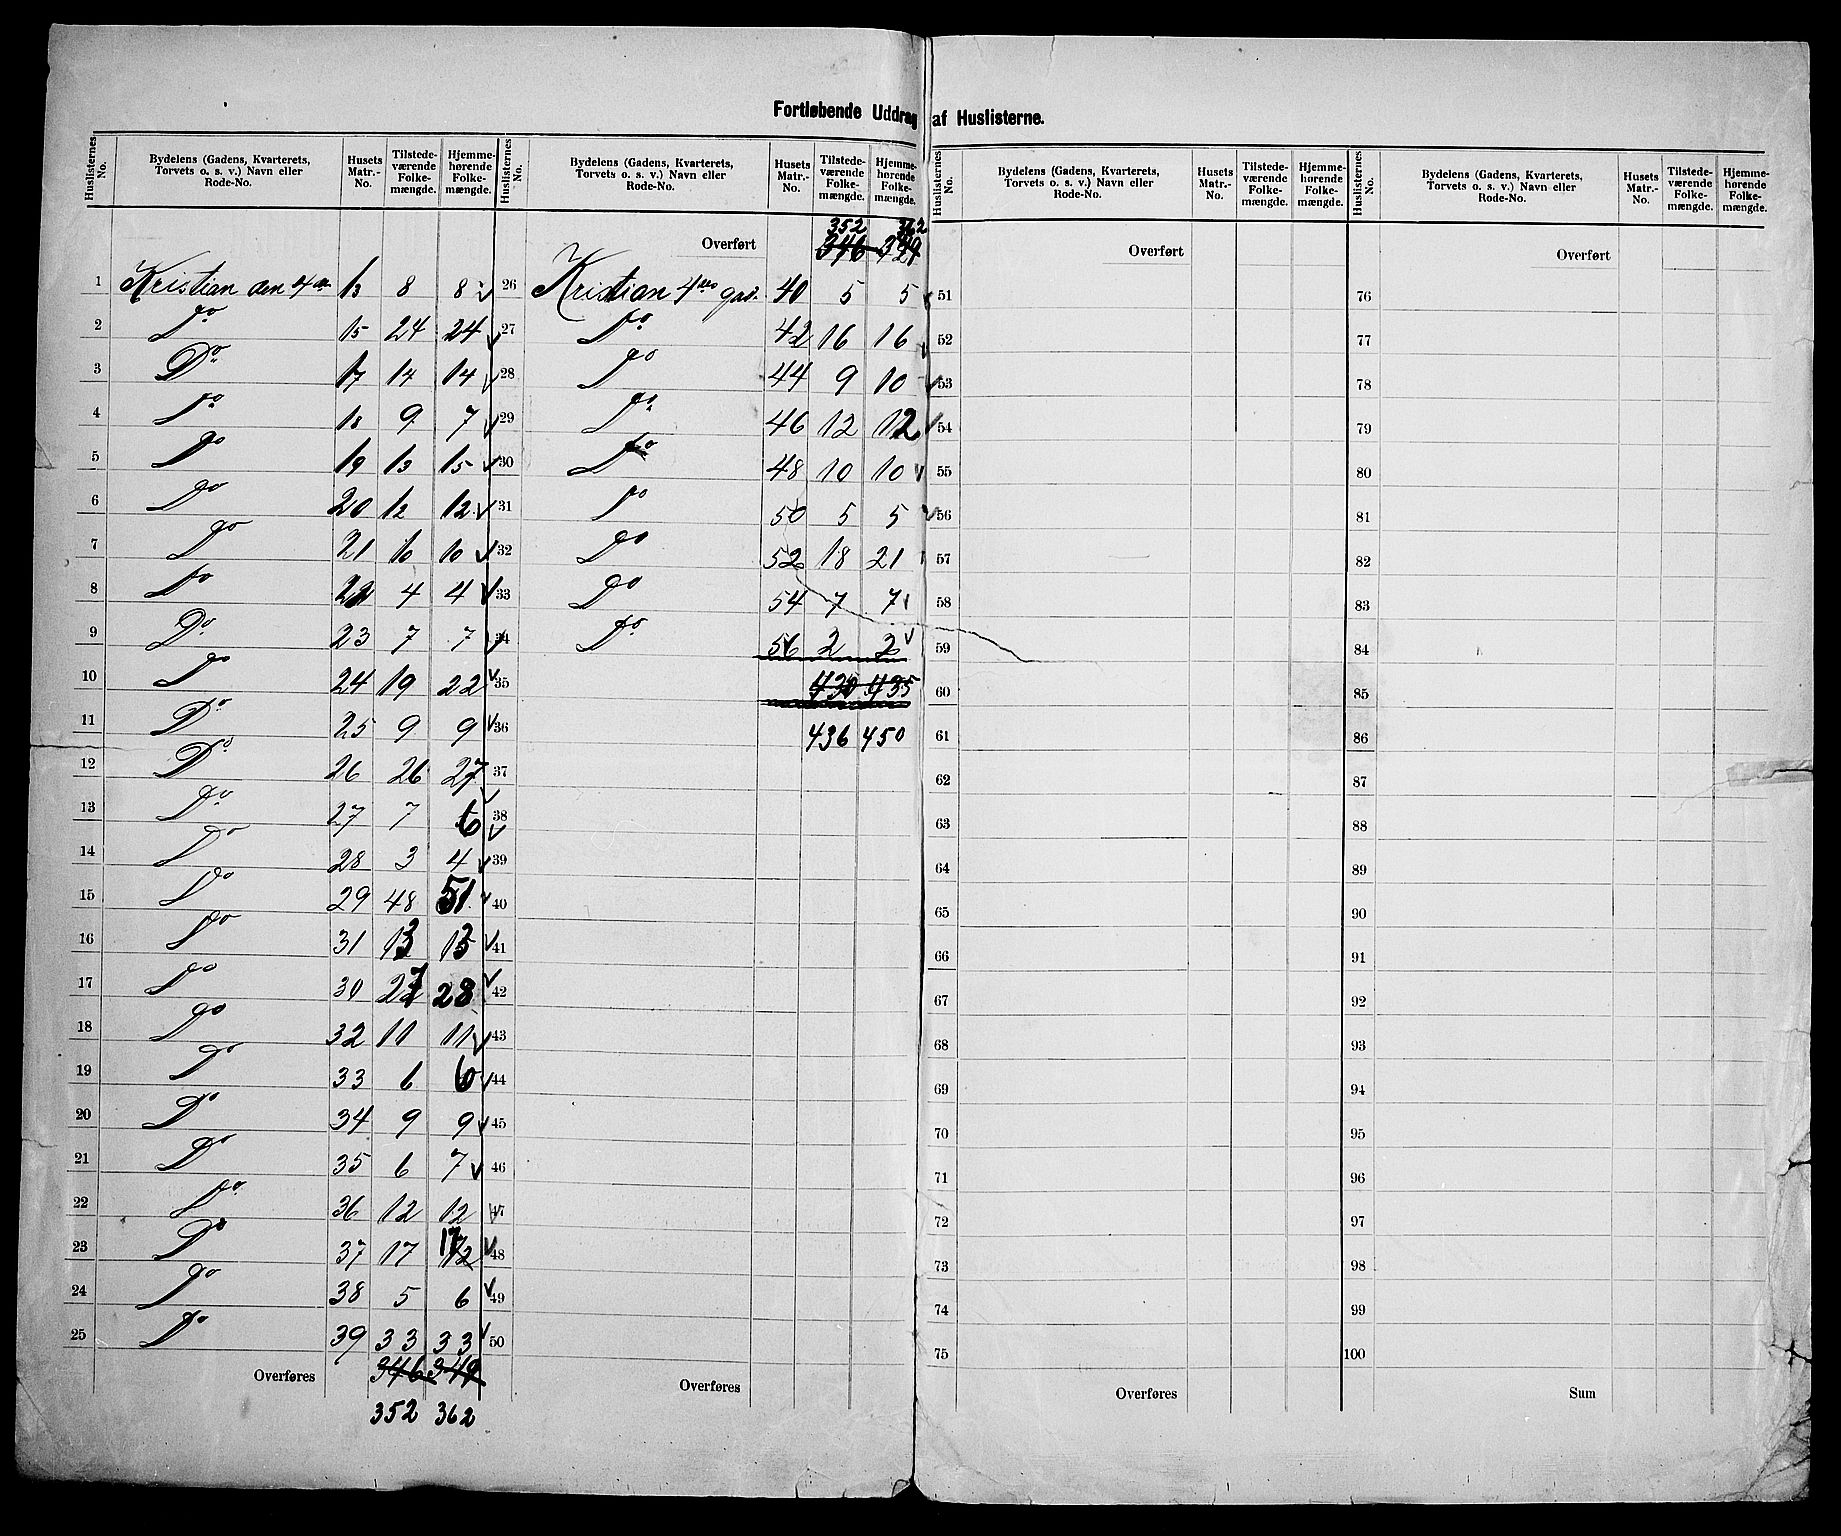 Fortløbende Uddrag af Huslisterne.
Huslisternes No. | Bydelens (Gadens, Kvarterets, Torvets o. s. v.) Navn eller Rode-No. | Husets Matr.-No. | Tilstedeværende Folkemængde. | Hjemmehørende Folkemængde.
1 Kristian den 4des 13 8 8
2 Do 15 24 24
3 Do 17 14 14
4 Do 18 9 7
5 Do 19 13 15
6 Do 20 12 12
7 Do 21 10 10
8 Do 22 4 4
9 Do 23 7 7
10 Do 24 19 22
11 Do 25 9 9
12 Do 26 26 27
13 Do 27 7 6
14 Do 28 3 4
15 Do 29 48 51
16 Do 31 13 13
17 Do 30 27 28
18 Do 32 11 11
19 Do 33 6 6
20 Do 34 9 9
21 Do 35 6 7
22 Do 36 12 12
23 Do 37 17 17 12
24 Do 38 5 6
25 Do 39 33 33
Overføres 346 349
352 362
Huslisternes No. | Bydelens (Gadens, Kvarterets, Torvets o. s. v.) Navn eller Rode-No. | Husets Matr.-No. | Tilstedeværende Folkemængde. | Hjemmehørende Folkemængde.
352 362
Overført 346 349
26 Kristian 4des gad. 40 5 5
27 Do 42 16 16
28 Do 44 9 10
29 Do 46 12 12
30 Do 48 10 10
31 Do 50 5 5
32 Do 52 18 21
33 Do 54 7 7
34 Do 56 2 2
35 430 435
36 436 450
37
38
39
40
41
42
43
44
45
46
47
48
49
50
Overføres
Huslisternes No. | Bydelens (Gadens, Kvarterets, Torvets o. s. v.) Navn eller Rode-No. | Husets Matr.-No. | Tilstedeværende Folkemængde. | Hjemmehørende Folkemængde.
Overført
51
52
53
54
55
56
57
58
59
60
61
62
63
64
65
66
67
68
69
70
71
72
73
74
75
Overføres
Huslisternes No. | Bydelens (Gadens, Kvarterets, Torvets o. s. v.) Navn eller Rode-No. | Husets Matr.-No. | Tilstedeværende Folkemængde. | Hjemmehørende Folkemængde.
Overført
76
77
78
79
80
81
82
83
84
85
86
87
88
89
90
91
92
93
94
95
96
97
98
99
100
Sum